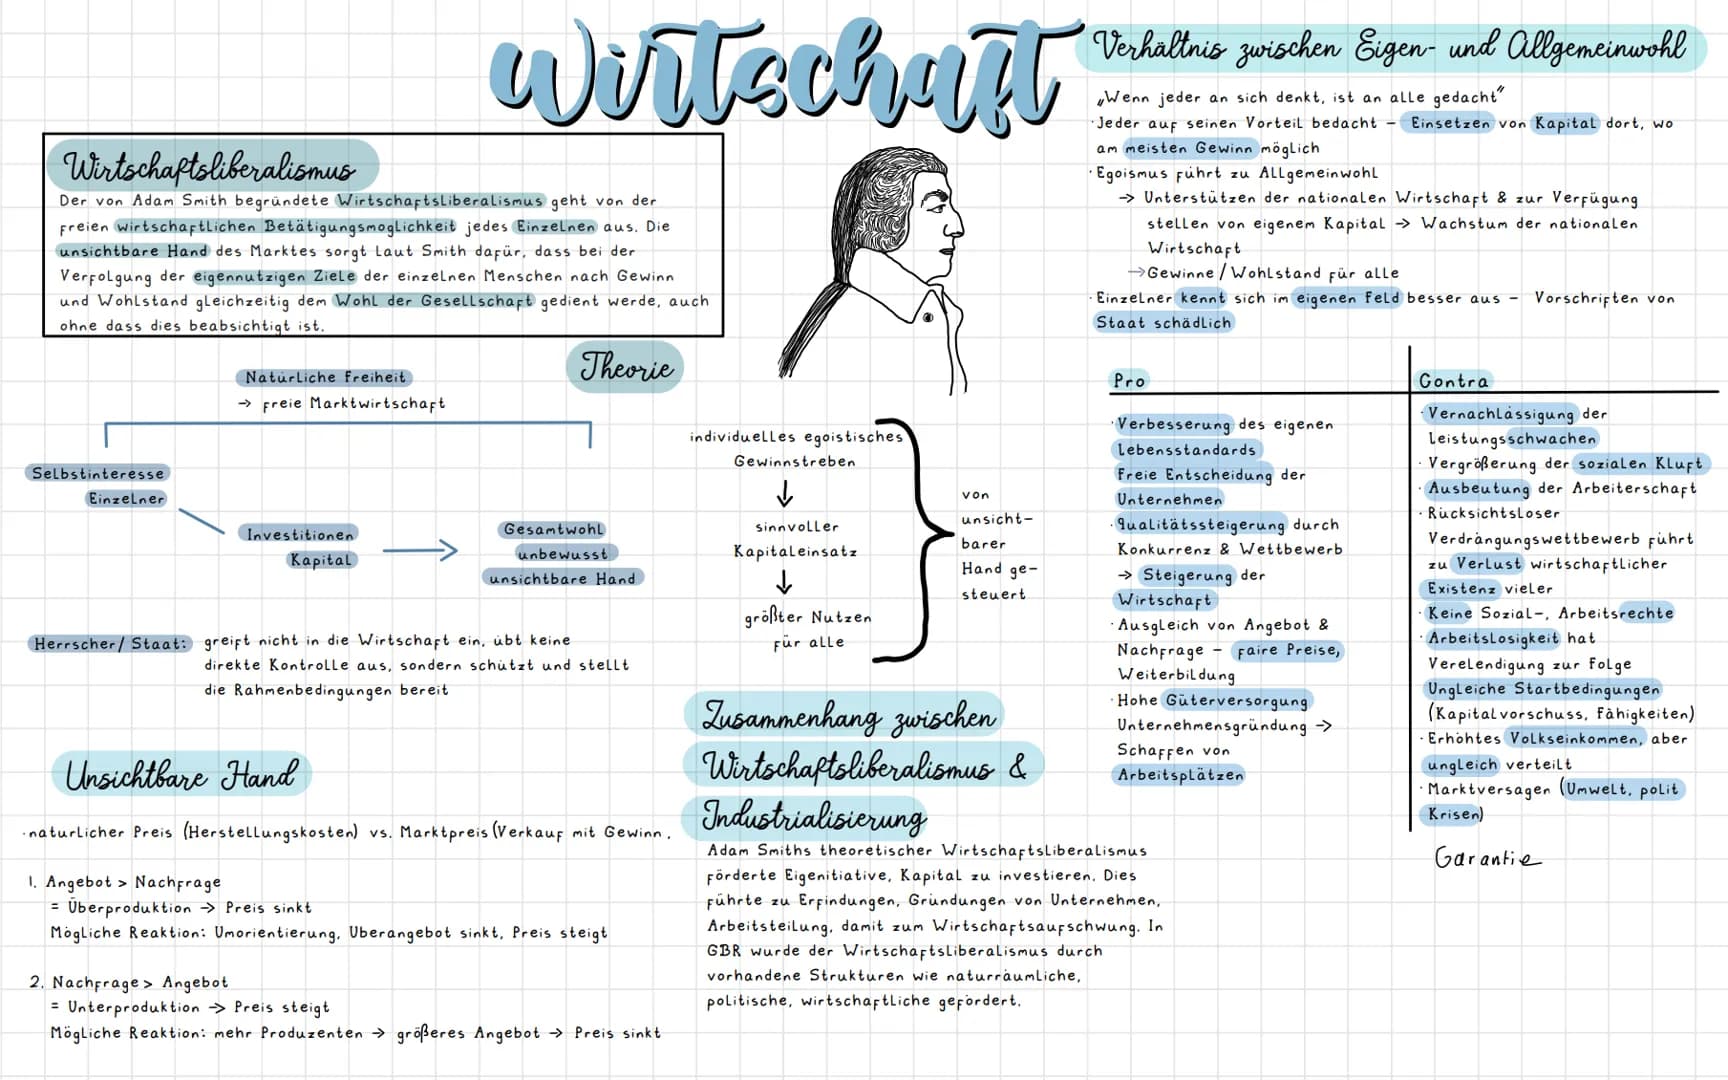 Wirtschaft
Wirtschaftsliberalismus
Der von Adam Smith begründete Wirtschaftsliberalismus geht von der
freien wirtschaftlichen Betätigungsmöglichkeit jedes Einzelnen aus. Die
unsichtbare Hand des Marktes sorgt laut Smith dafür, dass bei der
Verfolgung der eigennutzigen Ziele der einzelnen Menschen nach Gewinn
und Wohlstand gleichzeitig dem Wohl der Gesellschaft gedient werde, auch
ohne dass dies beabsichtigt ist.
Theorie
Natürliche Freiheit
→ freie Marktwirtschaft
Selbstinteresse
Einzelner
Investitionen
Kapital
Gesamtwohl
unbewusst
unsichtbare Hand
Herrscher/Staat: greift nicht in die Wirtschaft ein, übt keine
direkte Kontrolle aus, sondern schützt und stellt
die Rahmenbedingungen bereit
individuelles egoistisches
Gewinnstreben
↓
sinnvoller
Kapitaleinsatz
↓
größter Nutzen
für alle
von
unsicht-
barer
Hand ge-
steuert
Unsichtbare Hand
·natürlicher Preis (Herstellungskosten) vs. Marktpreis (Verkauf mit Gewinn,
1. Angebot > Nachfrage
= Überproduktion → Preis sinkt
Mögliche Reaktion: Umorientierung, Überangebot sinkt, Preis steigt
2. Nachfrage > Angebot
= Unterproduktion → Preis steigt
Mögliche Reaktion: mehr Produzenten → größeres Angebot → Preis sinkt
Zusammenhang zwischen
Wirtschaftsliberalismus &
Industrialisierung
Adam Smiths theoretischer Wirtschaftsliberalismus
förderte Eigenitiative, Kapital zu investieren. Dies
führte zu Erfindungen, Gründungen von Unternehmen,
Arbeitsteilung, damit zum Wirtschaftsaufschwung. In
GBR wurde der Wirtschaftsliberalismus durch
vorhandene Strukturen wie naturräumliche,
politische, wirtschaftliche gefördert.
Verhältnis zwischen Eigen- und Allgemeinwohl
„Wenn jeder an sich denkt, ist an alle gedacht"
·Jeder auf seinen Vorteil bedacht – Einsetzen von Kapital dort, wo
am meisten Gewinn möglich
·Egoismus führt zu Allgemeinwohl
→ Unterstützen der nationalen Wirtschaft & zur Verfügung
stellen von eigenem Kapital → Wachstum der nationalen
Wirtschaft
→ Gewinne / Wohlstand für alle
·Einzelner kennt sich im eigenen Feld besser aus – Vorschriften von
Staat schädlich
Pro
·Verbesserung des eigenen
Lebensstandards
Freie Entscheidung der
Unternehmen
·Qualitätssteigerung durch
Konkurrenz & Wettbewerb
→ Steigerung der
Wirtschaft
·Ausgleich von Angebot &
Nachfrage – faire Preise,
Weiterbildung
·Hohe Güterversorgung
Unternehmensgründung →
Schaffen von
Arbeitsplätzen
Contra
·Vernachlässigung der
Leistungsschwachen
·Vergrößerung der sozialen Kluft
·Ausbeutung der Arbeiterschaft
·Rücksichtsloser
Verdrängungswettbewerb führt
zu Verlust wirtschaftlicher
Existenz vieler
·Keine Sozial-, Arbeitsrechte
·Arbeitslosigkeit hat
Verelendigung zur Folge
Ungleiche Startbedingungen
(Kapitalvorschuss, Fähigkeiten)
·Erhöhtes Volkseinkommen, aber
ungleich verteilt
·Marktversagen (Umwelt, polit
Krisen)
Garantie